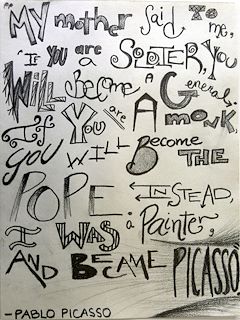 MY mother Said To me,
"If you are a SPLOTER, You
Will Become A General.
If You are A monk,
you will Become THE
POPE INSTEAD,
I WAS a Painter,
AND BECAME PICASSO
- PABLO PICASSO